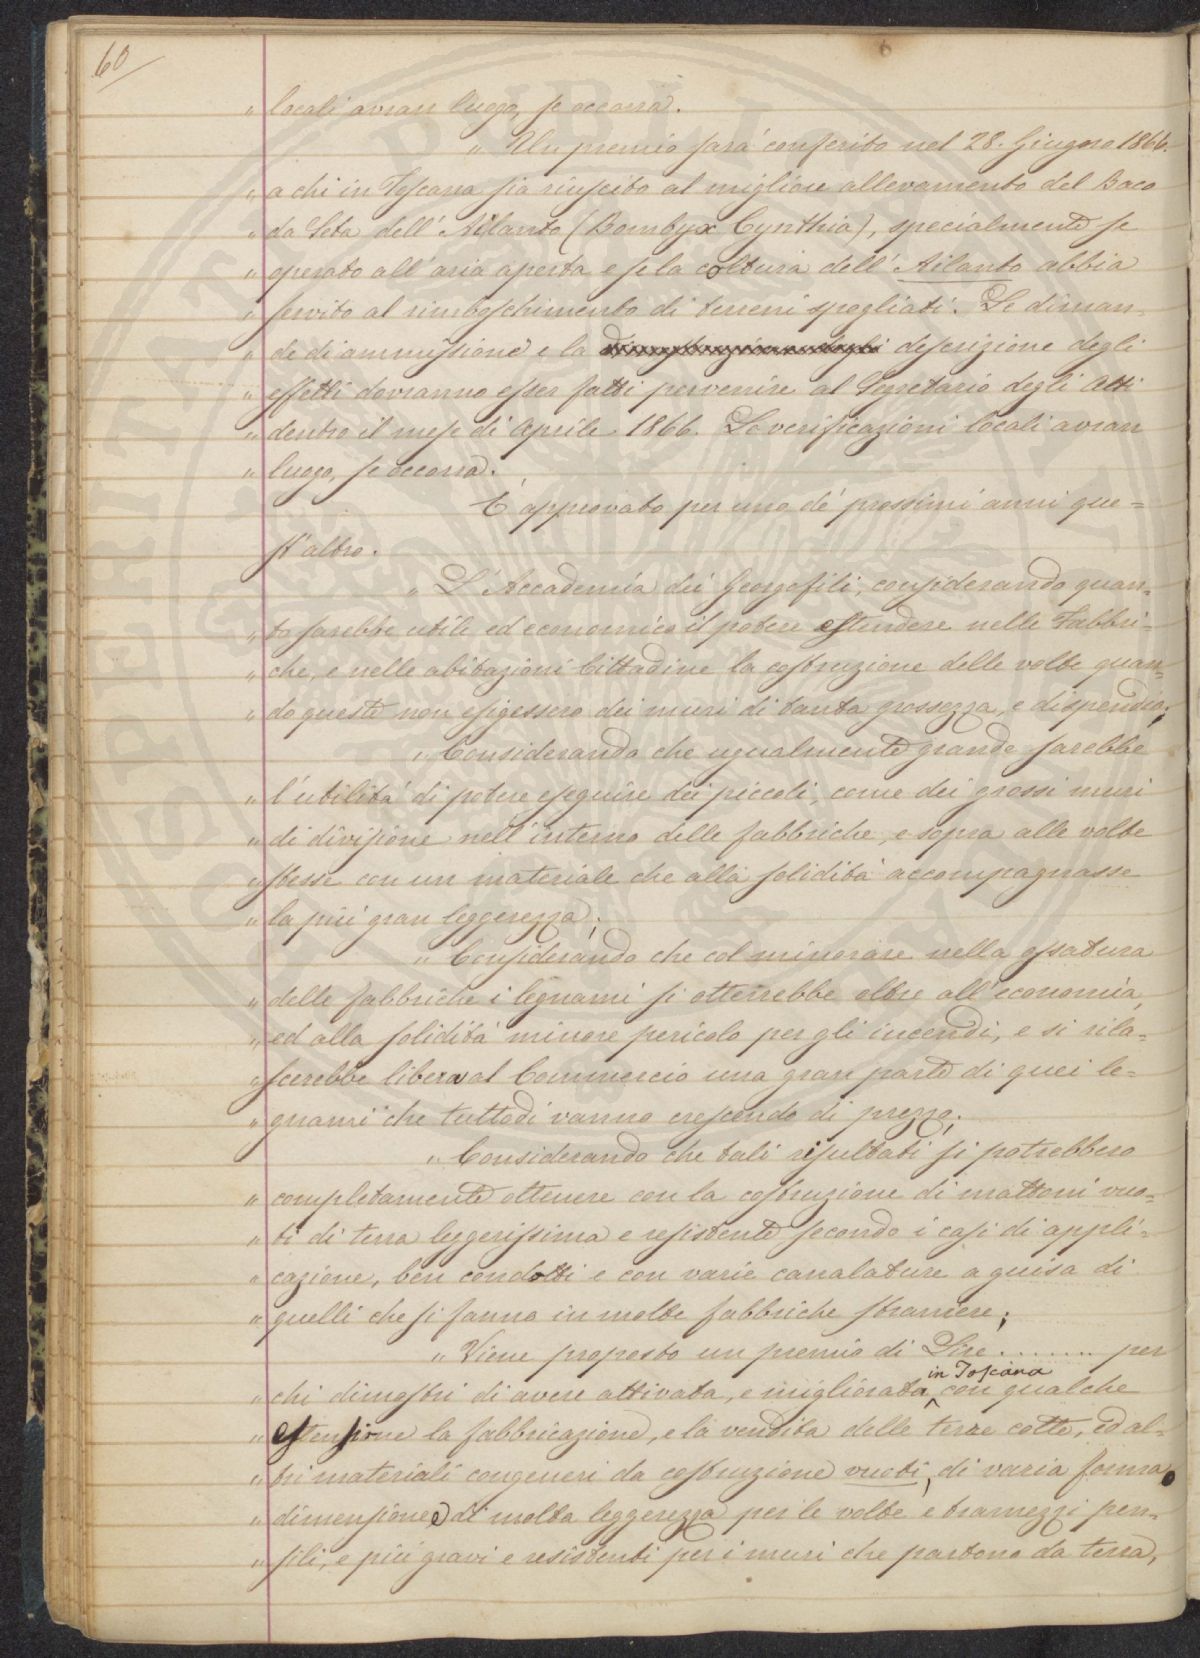 60
„ locali avran luogo, se occorra.
„ Un premio sarà conferito nel 28. Giugno 1866.
„ a chi in Toscana sia riuscito al migliore allevamento del Baco
„ da Seta dell'Ailanto (Bombyx Cynthia), specialmente se
„ operato all'aria aperta e se la coltura dell'Ailanto abbia
„ servito al rimboschimento di terreni spogliati. Le diman„
„ de di ammissione e la descrizione degli
„ effetti dovranno esser fatti pervenire al Segretario degli Atti
„ dentro il mese di Aprile 1866. Le verificazioni locali avran
„ luogo, se occorra.
È approvato per uno de' prossimi anni que=
st'altro.
„ L'Accademia dei Georgofili, considerando quan„
„ to sarebbe utile ed economico il potere estendere nelle Fabbri=
„ che, e nelle abitazioni Cittadine la costruzione delle volte quan„
„ do queste non esigessero dei muri di tanta grossezza, e dispendio;
„ Considerando che ugualmente grande sarebbe
„ l'utilità di potere eseguire dei piccoli, come dei grossi muri
„ di divisione nell'interno delle fabbriche, e sopra alle volte
„ stesse con un materiale che alla solidità accompagnasse
„ la più gran leggerezza;
„ Considerando che col minorare nella ossatura
„ delle fabbriche i legnami si otterrebbe oltre all'economia,
„ ed alla solidità minore pericolo per gli incendi, e si rila=
„ scerebbe libera al Commercio una gran parte di quei le=
„ gnami che tuttodì vanno crescendo di prezzo;
„ Considerando che tali risultati si potrebbero
„ completamente ottenere con la costruzione di mattoni vuo=
„ ti di terra leggerissima e resistente secondo i casi di appli=
„ cazione, ben condotti e con varie canalature a guisa di
„ quelli che si fanno in molte fabbriche straniere;
„ Viene proposto un premio di Lire ........ per
in Toscana
„ chi dimostri di avere attivata, e migliorata con qualche
„ estensione la fabbricazione, e la vendita delle terre cotte, ed al=
„ tri materiali congeneri da costruzione vuoti, di varia forma
„ dimensione e di molta leggerezza per le volte e tramezzi pen„
„ sili, e più gravi e resistenti per i muri che partono da terra,